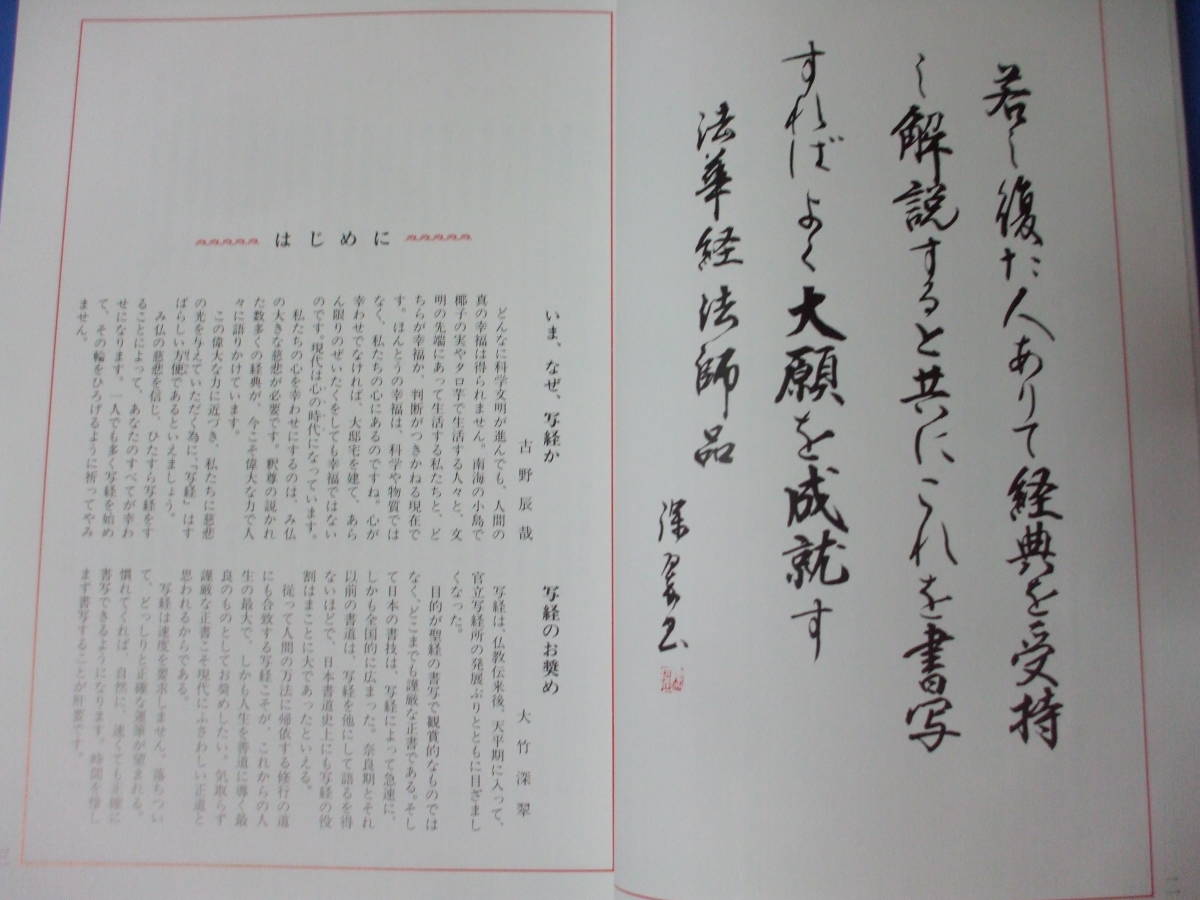 若し復た人ありて経典を受持
し解説すると共にこれを書写
すればよく大願を成就す
法華経法師品
深翠書
二
はじめに
いま、なぜ、写経か
古野辰哉
どんなに科学文明が進んでも、人間の
真の幸福は得られません。南海の小島で
椰子の実やタロ芋で生活する人々と、文
明の先端にあって生活する私たちと、ど
ちらが幸福か、判断がつきかねる現在で
す。ほんとうの幸福は、科学や物質では
なく、私たちの心にあるのですね。心が
幸わせでなければ、大邸宅を建て、あら
ん限りのぜいたくをしても幸福ではない
のです。現代は心の時代になっています。
私たちの心を幸わせにするのは、み仏
の大きな慈悲が必要です。釈尊の説かれ
た数多くの経典が、今こそ偉大な力で人
々に語りかけています。
この偉大な力に近づき、私たちに慈悲
の光を与えていただく為に、『写経』はす
ばらしい方便であるといえましょう。
み仏の慈悲を信じ、ひたすら写経をす
ることによって、あなたのすべてが幸わ
せになります。一人でも多く写経を始め
て、その輪をひろげるように祈ってやみ
ません。
写経のお奨め
大竹深翠
写経は、仏教伝来後、天平期に入って、
官立写経所の発展ぶりとともに目ざまし
くなった。
目的が聖経の書写で観賞的なものでは
なく、どこまでも謹厳な正書である。そし
て日本の書技は、写経によって急速に、
しかも全国的に広まった。奈良期とそれ
以前の書道は、写経を他にして語るを得
ないほどで、日本書道史上にも写経の役
割はまことに大であったといえる。
従って人間の万法に帰依する修行の道
にも合致する写経こそが、これからの人
生の最大で、しかも人生を善道に導く最
良のものとしてお奨めしたい。気取らず
謹厳な正書こそ現代にふさわしい正道と
思われるからである。
写経は速度を要求しません。落ちつい
て、どっしりと正確な運筆が望まれる。
慣れてくれば、自然に、速くても正確に
書写できるようになります。時間を惜し
まず書写することが肝要です。
三